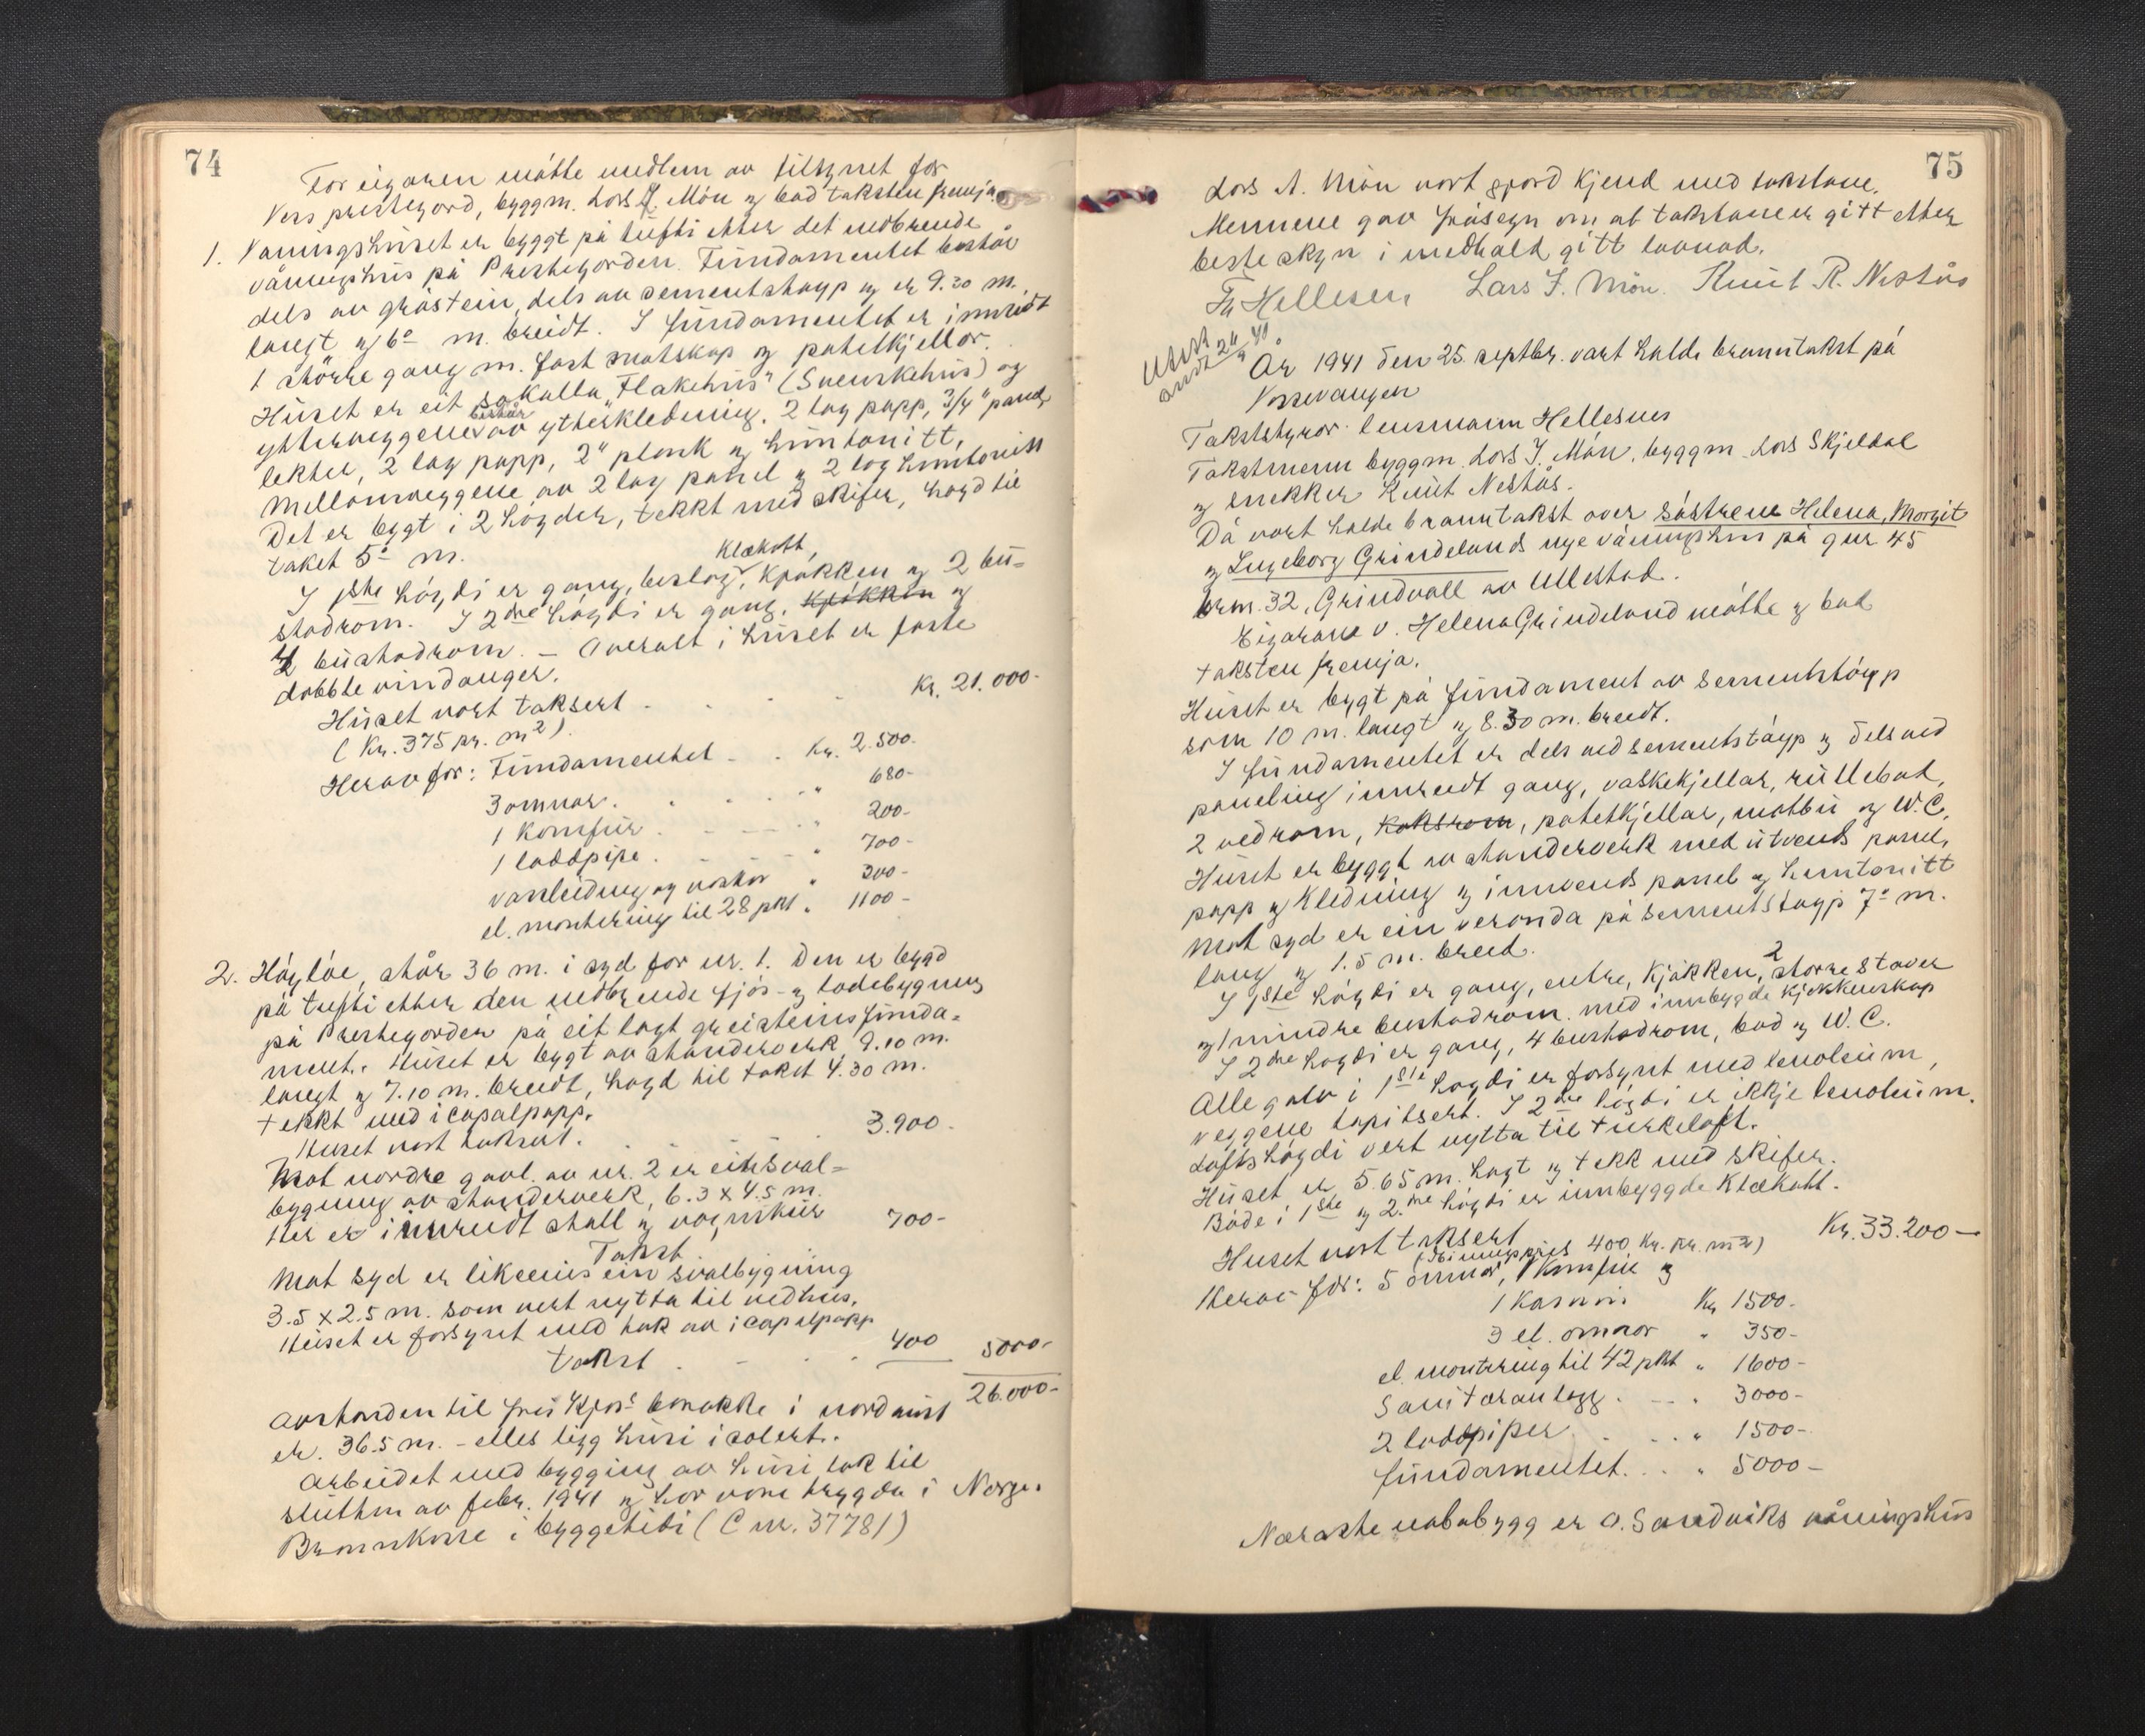 74
For eigaren møtte medlem av tilsynet for
Vors prestegard, byggm. Lars A. Møn og bad taksten fremja.
1. Vaningshuset er byggt på tufti etter det nedbrende
våningshus på Prestegarden. Fundamentet består
dels av gråstein, dels av sementstøyp og er 9.20 m.
langt og 6⁰ m. breidt. I fundamentet er innreidt
1 större gang m. fast matskap og potetkjellar.
Huset er eit sokalla "Flakehus" (Svenskehus) og
ytterveggene består av ytterkledning, 2 lag papp, 3/4" panel,
lekter, 2 lag papp, 2" plank og huntonitt.
Mellomveggene av 2 lag panel og 2 lag huntonitt
Det er bygt i 2 høgder, tekkt med skifer, høgd til
taket 5⁰ m.
I 1ste høgdi er gang, beslag, klekott, kjøkken og 2 bu-
stadrom. I 2dre høgdi er gang, kjøkken og
4 bustadrom. – Overalt i huset er faste
dobble vindauger.
Huset vart taksert . . . . Kr. 21.000-
(Kr. 375 pr. m²).
Herav for: Fundamentet . . Kr. 2.500-
3 omnar . . . . " 680-
1 komfur . . . " 200-
1 loddpipe . . . " 700-
vassleidning og vaskar " 300-
el. montering til 28 pkt " 1100-
2. Høyløe, står 36 m. i syd for nr. 1. Den er bygd
på tufti etter den nedbrende fjøs- og lødebygning
på Prestegarden på eit lagt gråsteinsfunda-
ment. Huset er bygt av standerverk, 9.10 m.
langt og 7.10 m. breidt, høgd til taket 4.30 m.
tekkt med icopalpapp.
Huset vart taksert . . . . 3.900-
Mot nordre gavl av nr. 2 er eit sval-
bygning av standerverk, 6.3 x 4.5 m.
Her er innreidt stall og vognskur
Takst . 700-
Mot syd er likeeins ein svalbygning
3.5 x 2.5 m. som vert nytta til vedhus.
Huset er forsynt med tak av icopalpapp
takst . . . 400 5000-
26.000-
Avstanden til frü Kjos' brakke i nordaust
er 36.5 m. – elles ligg husi isolert.
Arbeidet med bygging av husi tok til
slutten av febr. 1941 og har vore trygda i Norges
Brannkasse i byggetidi (C nr. 37781)
75
Lars A. Møn vart gjord kjend med takstane.
Mennene gav fråsegn om at takstane er gitt etter
beste skyn i medhald gitt lovnad.
Fr Hellesen Lars J. Møn. Knut R. Nestås
Utskr.
sendt 26/9 41
År 1941 den 25. septbr. vart halde branntakst på
Vossevangen
Takststyrar: lensmann Hellesnes
Takstmenn byggm. Lars J. Møn, byggm. Lars Skjeldal
og snekker Knut Nestås.
Då vart halde branntakst over såstrene Helena, Margit
og Ingeborg Grindelands nye våningshus på gnr 45
brn. 32, Grindvoll av Ullestad.
Eigarane v. Helena Grindeland møtte og bad
taksten fremja.
Huset er bygt på fundament av sementstøyp
som 10 m. langt og 8.30 m. breidt.
I fundamentet er dels ved sementstøyp og dels ved
paneling innreidt gang, vaskekjellar, rullebod,
2 vedrom, koksrom, potetkjellar, matbu og W.C.
Huset er byggt av standerverk med utvends panel,
papp og kledning og innvends panel og huntonitt
Mot syd er ein veranda på sementstøyp 7⁰ m.
lang og 1.5 m. breid.
I 1ste høgdi er gang, entre, kjøkken, 2 større stover
og 1 mindre bustadrom. med innbygde kjøkkenskap
I 2dre høgdi er gang, 4 bustadrom, bad og W.C.
Alle golv i 1ste høgdi er forsynt med lenoleum,
veggene tapitsert. I 2dre høgdi er ikkje lenoleum.
Loftshøgdi vert nytta til turkeloft.
Huset er 5.65 m. høgt og tekk med skifer.
Både i 1ste og 2.dre høgdi er innbyggde klekott.
Huset vart taksert Kr. 33.200—
(Einingspris 400 kr. pr. m²)
Herav for: 5 omnar, 1 komfur og
1 kamin Kr 1500-
3 el. omnar " 350-
el. montering til 42 pkt " 1600-
Sanitæranlegg . . . 3000-
2 loddpiper . . . " 1500-
fundamentet . . . " 5000-
Næraste nabobygg er O. Sandviks våningshus